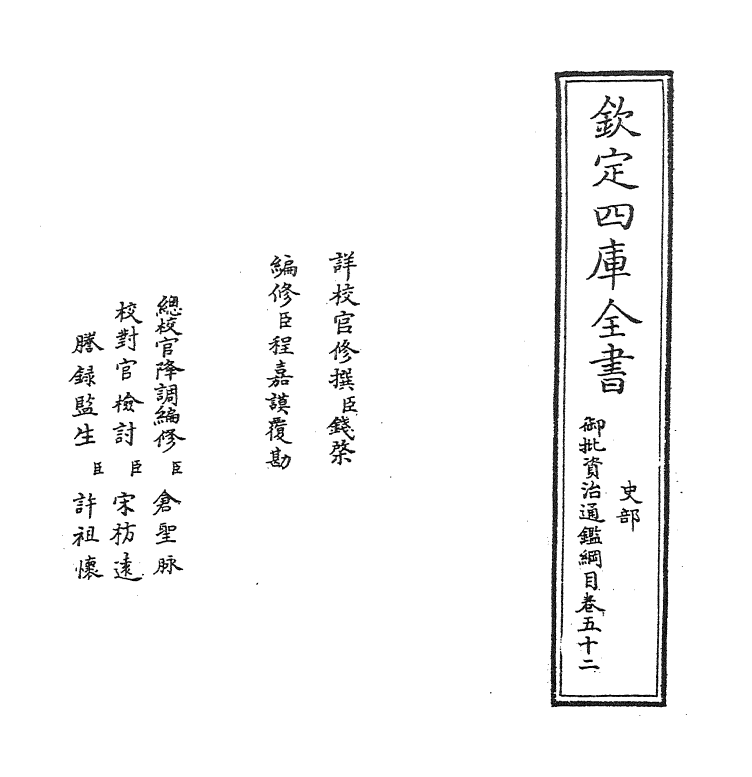 欽定四庫全書
史部
御批資治通鑑綱目卷五十二
詳校官修撰臣錢棨
編修臣程嘉謨覆勘
總校官降調編修臣倉聖脉
校對官檢討臣宋枋遠
謄録監生臣許祖懷